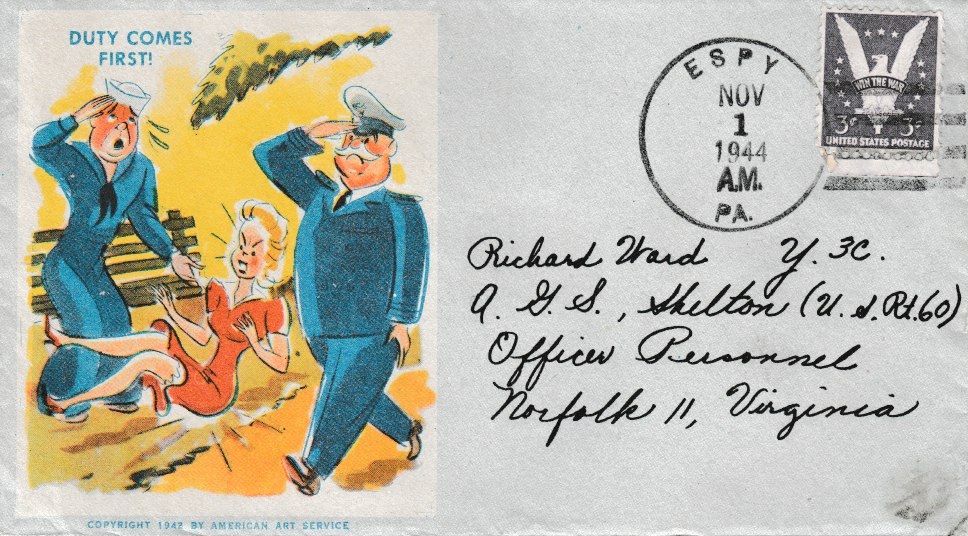 DUTY COMES
FIRST!
ESPY
NOV
1
1944
A.M.
PA.
WIN THE WAR
3¢ 3¢
UNITED STATES POSTAGE
Richard Ward Y. 3C.
A. G. S., Shelton (U.S.Rt.60)
Officer Personnel
Norfolk 11, Virginia
COPYRIGHT 1942 BY AMERICAN ART SERVICE